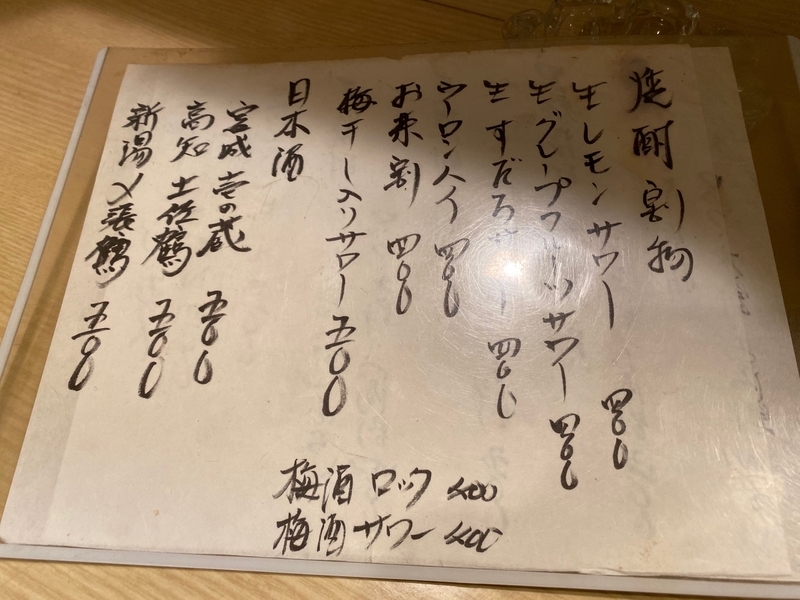 焼酎割物
生レモンサワー 四〇〇
生グレープフルーツサワー 四〇〇
生すだちサワー 四〇〇
ウーロンハイ 四〇〇
お茶割 四〇〇
梅干し入りサワー 五〇〇
日本酒
宮城 壱の蔵 五〇〇
高知 土佐鶴 五〇〇
新潟 〆張鶴 五〇〇
梅酒 ロック 400
梅酒 サワー 400